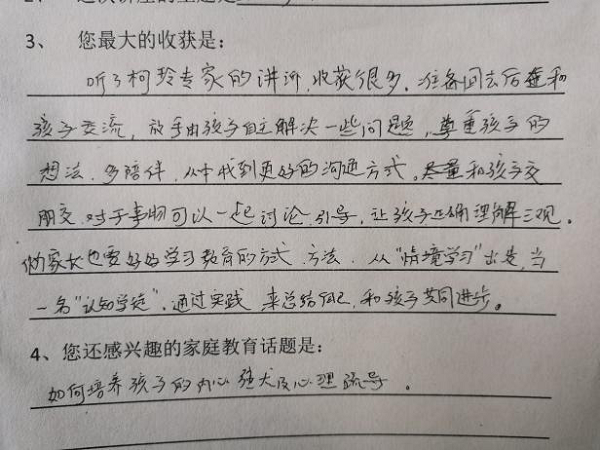 2、这次讲座的主题是：
3、 您最大的收获是：
听了柯玲专家的讲评，收获很多，准备回去后和
孩子交流，放手由孩子自主解决一些问题，尊重孩子的
想法，多陪伴，从中找到更好的沟通方式。尽量和孩子交
朋友，对于事物可以一起讨论，引导，让孩子正确理解三观。
做家长也要好好学习教育的方式、方法，从“情境学习”出发，当
一名“认知学徒”，通过实践，来总结自己，和孩子共同进步。
4、您还感兴趣的家庭教育话题是：
如何培养孩子的内心强大及心理疏导。